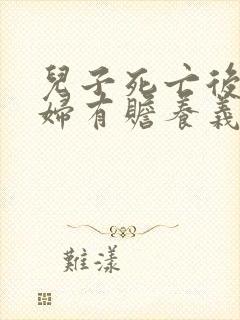 兒子死亡後
婦有贍養義
難漾